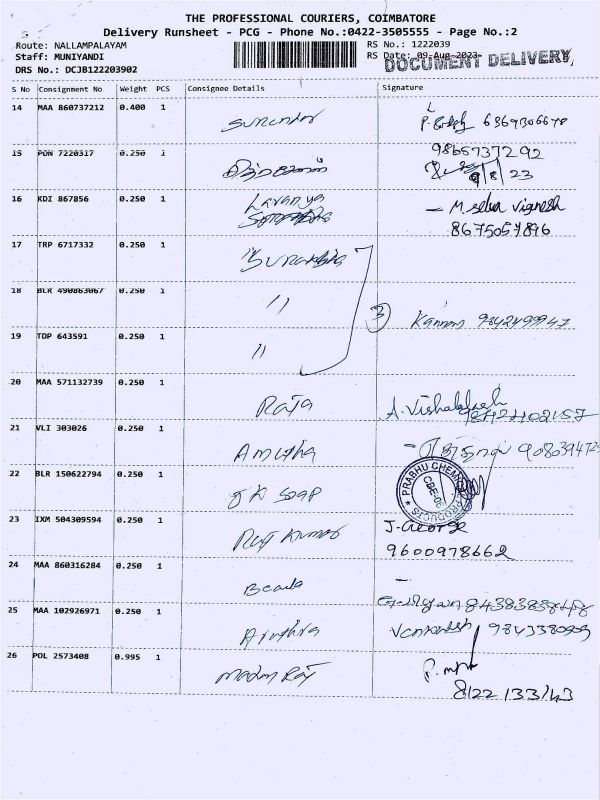 THE PROFESSIONAL COURIERS, COIMBATORE
Delivery Runsheet - PCG - Phone No.:0422-3505555 - Page No.:2
Route: NALLAMPALAYAM RS No.: 1222039
Staff: MUNIYANDI RS Date: 09-Aug-2023
DOCUMENT DELIVERY
DRS No.: DCJB122203902
S No Consignment No Weight PCS Consignee Details Signature
14 MAA 860737212 0.400 1 Surendar 6369306678
15 PON 7220317 0.250 1 9865737292
9/8/23
16 KDI 867856 0.250 1 Lavanya - M. Selva Vignesh
8675057896
17 TRP 6717332 0.250 1
18 BLR 490863067 0.250 1 " 3 Kannan 9842499947
19 TDP 643591 0.250 1 "
20 MAA 571132739 0.250 1 Raja A. Vishalakshi
21 VLI 303026 0.250 1 Amutha
22 BLR 150622794 0.250 1 JK Soap PRABHU CHEMICAL PRODUCTS CBE-06
23 IXM 504309594 0.250 1 Raj Kumar J. George
9600978662
24 MAA 860316284 0.250 1 -
25 MAA 102926971 0.250 1 Aruthra Venkatesh
26 POL 2573408 0.995 1 Madan Raj
8122 133143